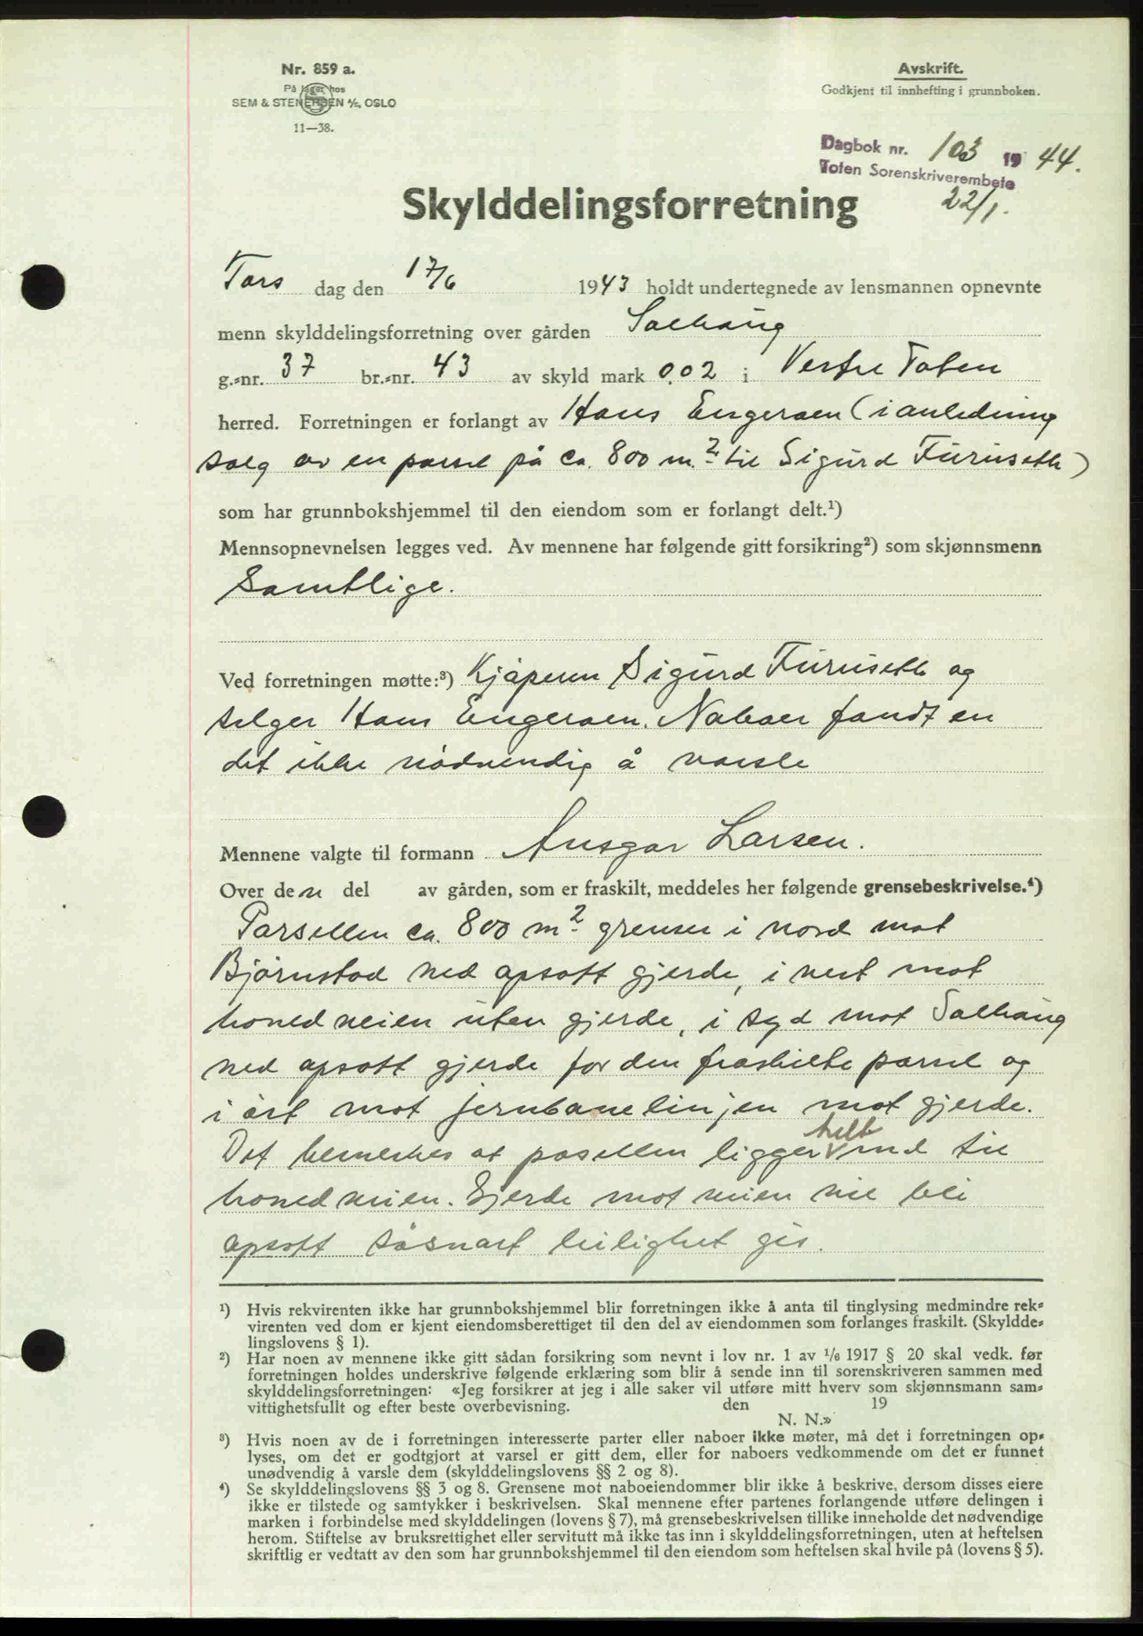 Nr. 859 a.
På lager hos
SEM & STENERSEN A/S, OSLO
11—38.
Avskrift.
Godkjent til innhefting i grunnboken.
Dagbok nr. 103 1944.
Toten Sorenskriverembete
22/1.
Skylddelingsforretning
Tors dag den 17/6 1943 holdt undertegnede av lensmannen opnevnte
menn skylddelingsforretning over gården Solhaug
g.-nr. 37 br.-nr. 43 av skyld mark 0.02 i Vestre Toten
herred. Forretningen er forlangt av Hans Engeraen (i anledning
salg av en parsel på ca. 800 m.2 til Sigurd Furuseth)
som har grunnbokshjemmel til den eiendom som er forlangt delt.¹)
Mennsopnevnelsen legges ved. Av mennene har følgende gitt forsikring²) som skjønnsmenn
Samtlige.
Ved forretningen møtte:³) Kjøperen Sigurd Furuseth og
selger Hans Engeraen. Naboer fandt en
det ikke nødvendig å varsle
Mennene valgte til formann Ansgar Larsen.
Over den del av gården, som er fraskilt, meddeles her følgende grensebeskrivelse.⁴)
Parsellen ca. 800 m2 grenser i nord mot
Bjørnstad ved opsatt gjerde, i vest mot
hovedveien uten gjerde, i syd mot Solhaug
ved opsatt gjerde for den fraskilte parsel og
i øst mot jernbanelinjen mot gjerde.
Det bemerkes at pasellen ligger helt ind til
hovedveien. Gjerde mot veien vil bli
opsatt såsnart leilighet gis.
¹) Hvis rekvirenten ikke har grunnbokshjemmel blir forretningen ikke å anta til tinglysing medmindre rek-
virenten ved dom er kjent eiendomsberettiget til den del av eiendommen som forlanges fraskilt. (Skyldde-
lingslovens § 1).
²) Har noen av mennene ikke gitt sådan forsikring som nevnt i lov nr. 1 av 1/6 1917 § 20 skal vedk. før
forretningen holdes underskrive følgende erklæring som blir å sende inn til sorenskriveren sammen med
skylddelingsforretningen: «Jeg forsikrer at jeg i alle saker vil utføre mitt hverv som skjønnsmann sam-
vittighetsfullt og efter beste overbevisning. den 19
N. N.»
³) Hvis noen av de i forretningen interesserte parter eller naboer ikke møter, må det i forretningen op-
lyses, om det er godtgjort at varsel er gitt dem, eller for naboers vedkommende om det er funnet
unødvendig å varsle dem (skylddelingslovens §§ 2 og 8).
⁴) Se skylddelingslovens §§ 3 og 8. Grensene mot naboeiendommer blir ikke å beskrive, dersom disses eiere
ikke er tilstede og samtykker i beskrivelsen. Skal mennene efter partenes forlangende utføre delingen i
marken i forbindelse med skylddelingen (lovens § 7), må grensebeskrivelsen tillike inneholde det nødvendige
herom. Stiftelse av bruksrettighet eller servitutt må ikke tas inn i skylddelingsforretningen, uten at heftelsen
skriftlig er vedtatt av den som har grunnbokshjemmel til den eiendom som heftelsen skal hvile på (lovens § 5).